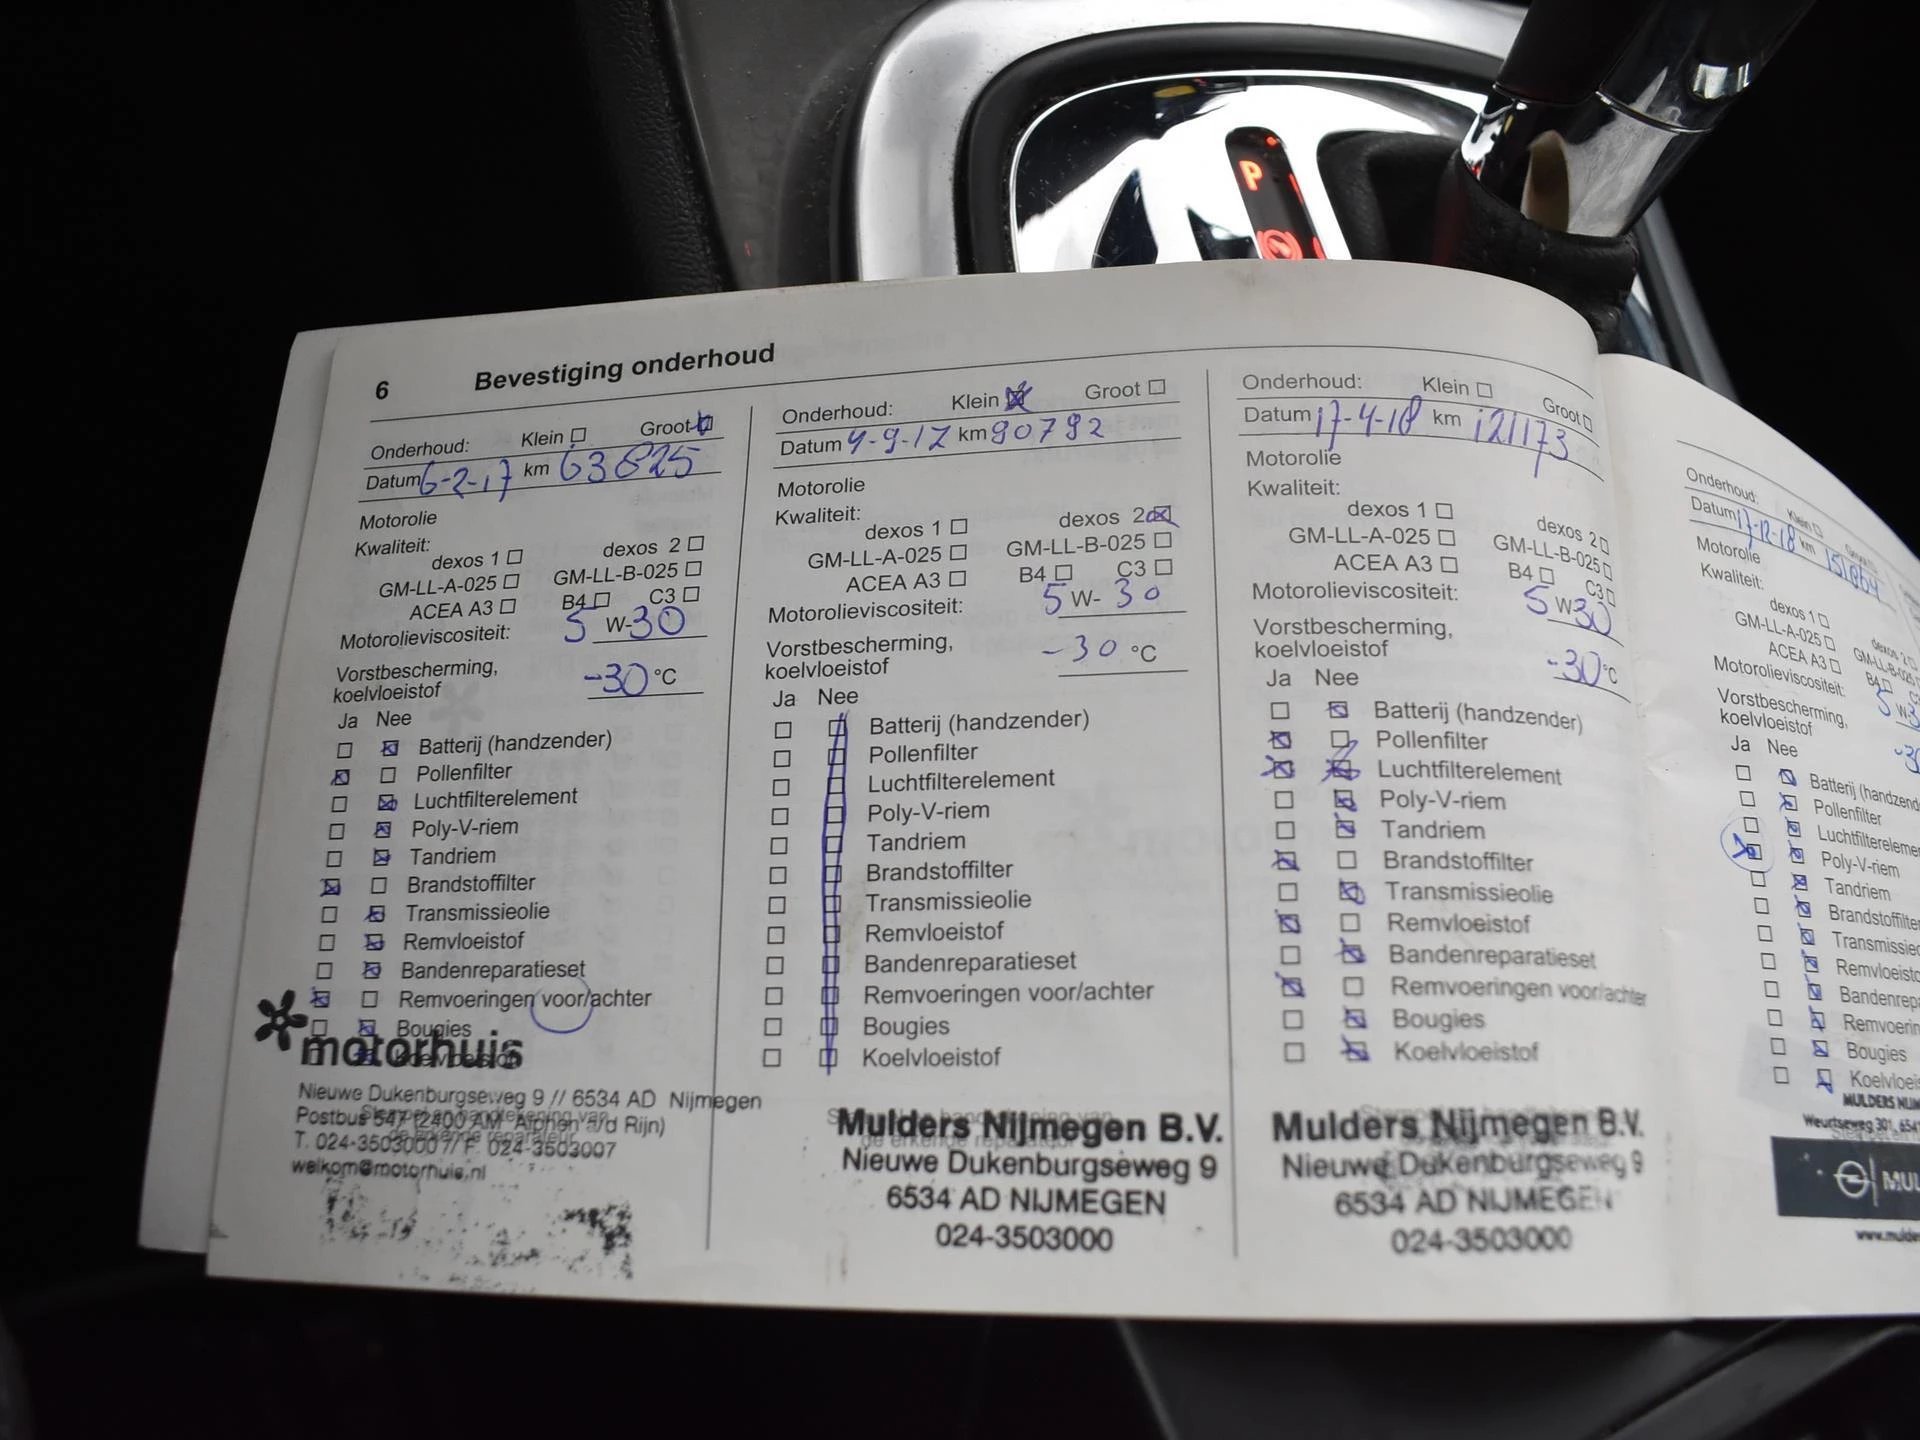 P
6 Bevestiging onderhoud
Onderhoud: Klein Groot
Datum 6-2-17 km 63825
Motorolie
Kwaliteit:
dexos 1 dexos 2
GM-LL-A-025 GM-LL-B-025
ACEA A3 B4 C3
Motorolieviscositeit: 5 W-30
Vorstbescherming,
koelvloeistof -30 °C
Ja Nee
Batterij (handzender)
Pollenfilter
Luchtfilterelement
Poly-V-riem
Tandriem
Brandstoffilter
Transmissieolie
Remvloeistof
Bandenreparatieset
Remvoeringen voor/achter
Bougies
Koelvloeistof
motorhuis
Nieuwe Dukenburgseweg 9 // 6534 AD Nijmegen
Postbus 547 (2400 AM Alphen a/d Rijn)
T. 024-3503000 // F. 024-3503007
welkom@motorhuis.nl
Onderhoud: Klein Groot
Datum 4-9-17 km 90792
Motorolie
Kwaliteit:
dexos 1 dexos 2
GM-LL-A-025 GM-LL-B-025
ACEA A3 B4 C3
Motorolieviscositeit: 5 W- 30
Vorstbescherming,
koelvloeistof -30 °C
Ja Nee
Batterij (handzender)
Pollenfilter
Luchtfilterelement
Poly-V-riem
Tandriem
Brandstoffilter
Transmissieolie
Remvloeistof
Bandenreparatieset
Remvoeringen voor/achter
Bougies
Koelvloeistof
Mulders Nijmegen B.V.
Nieuwe Dukenburgseweg 9
6534 AD NIJMEGEN
024-3503000
Onderhoud: Klein Groot
Datum 17-4-18 km 121173
Motorolie
Kwaliteit:
dexos 1 dexos 2
GM-LL-A-025 GM-LL-B-025
ACEA A3 B4 C3
Motorolieviscositeit: 5 W-30
Vorstbescherming,
koelvloeistof -30 °C
Ja Nee
Batterij (handzender)
Pollenfilter
Luchtfilterelement
Poly-V-riem
Tandriem
Brandstoffilter
Transmissieolie
Remvloeistof
Bandenreparatieset
Remvoeringen voor/achter
Bougies
Koelvloeistof
Mulders Nijmegen B.V.
Nieuwe Dukenburgseweg 9
6534 AD NIJMEGEN
024-3503000
Onderhoud: Klein
Datum 17-12-18 km
Motorolie
Kwaliteit:
dexos 1 dexos 2
GM-LL-A-025 GM-LL-B-025
ACEA A3 B4
Motorolieviscositeit: 5 W-
Vorstbescherming,
koelvloeistof
Ja Nee
Batterij (handzend
Pollenfilter
Luchtfiltereleme
Poly-V-riem
Tandriem
Brandstoffilte
Transmissie
Remvloeisto
Bandenrepa
Remvoerin
Bougies
Koelvloeis
MULDERS NIJM
Weurtseweg 301, 654
MUL
www.mulde